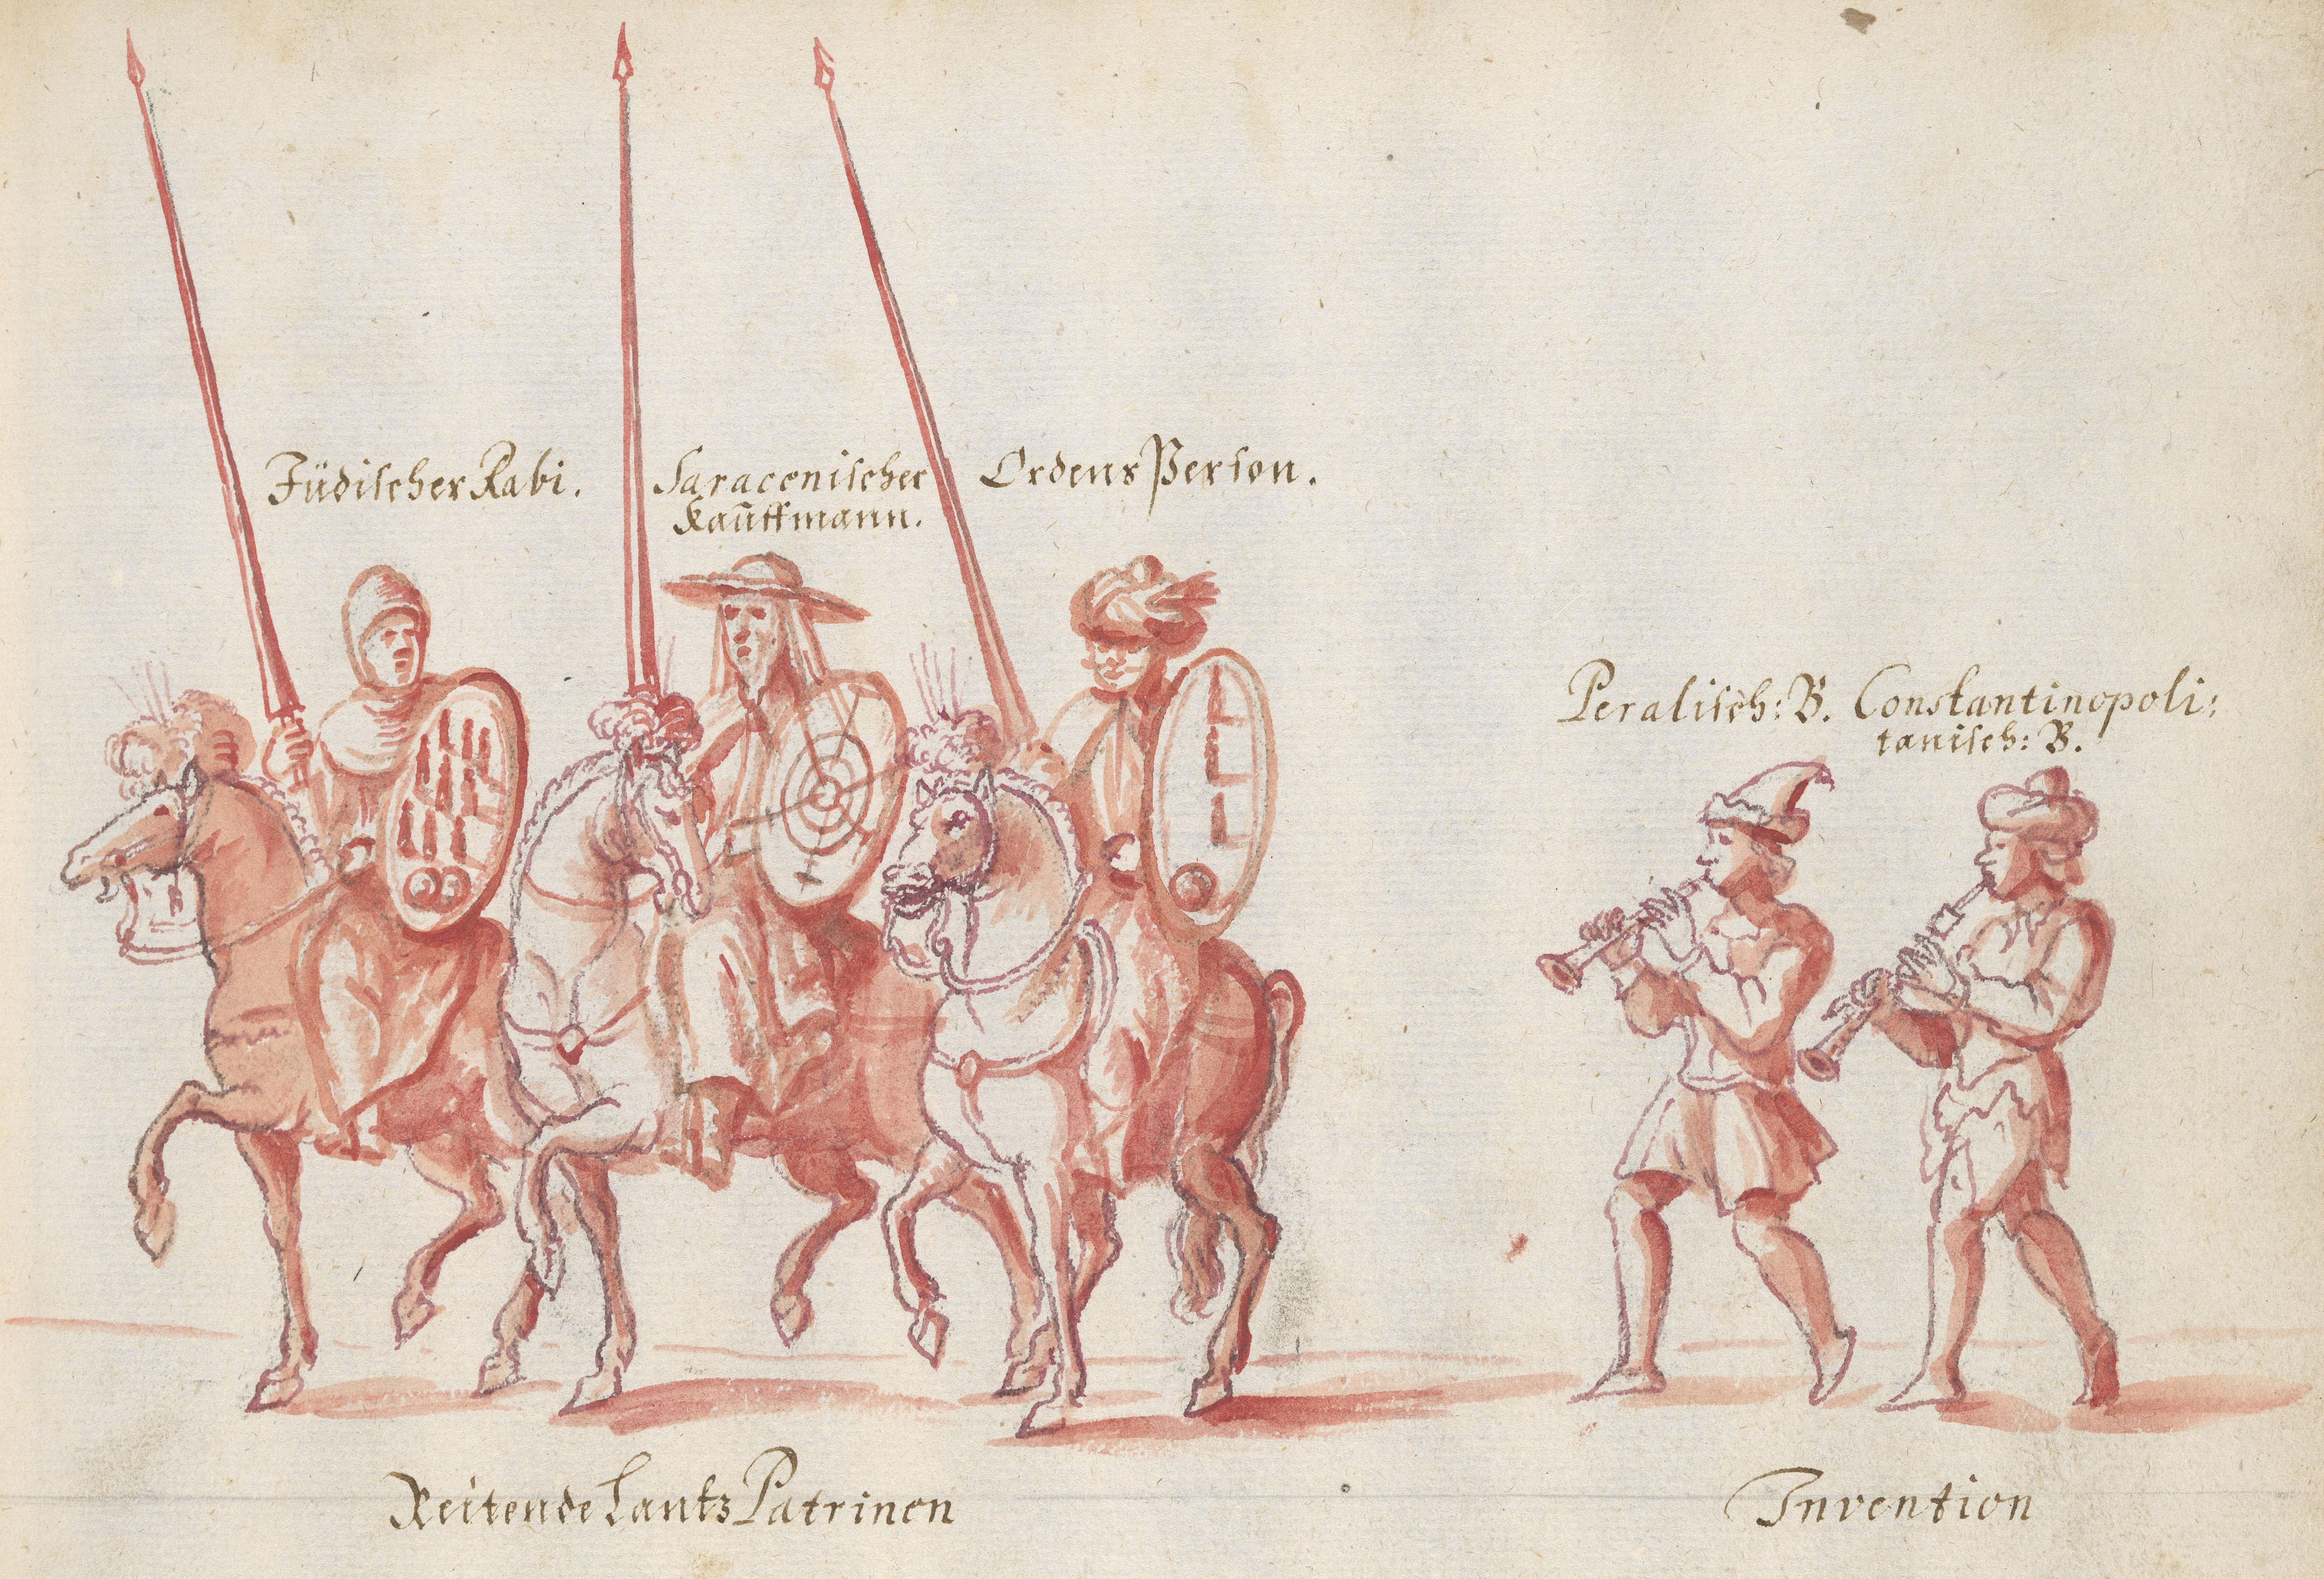 Jüdischer Rabi.
Saracenischer
Kauffmann.
Ordens Person.
Peralisch: B.
Constantinopoli:
tanisch: B.
Reitende Lantz Patrinen
Invention